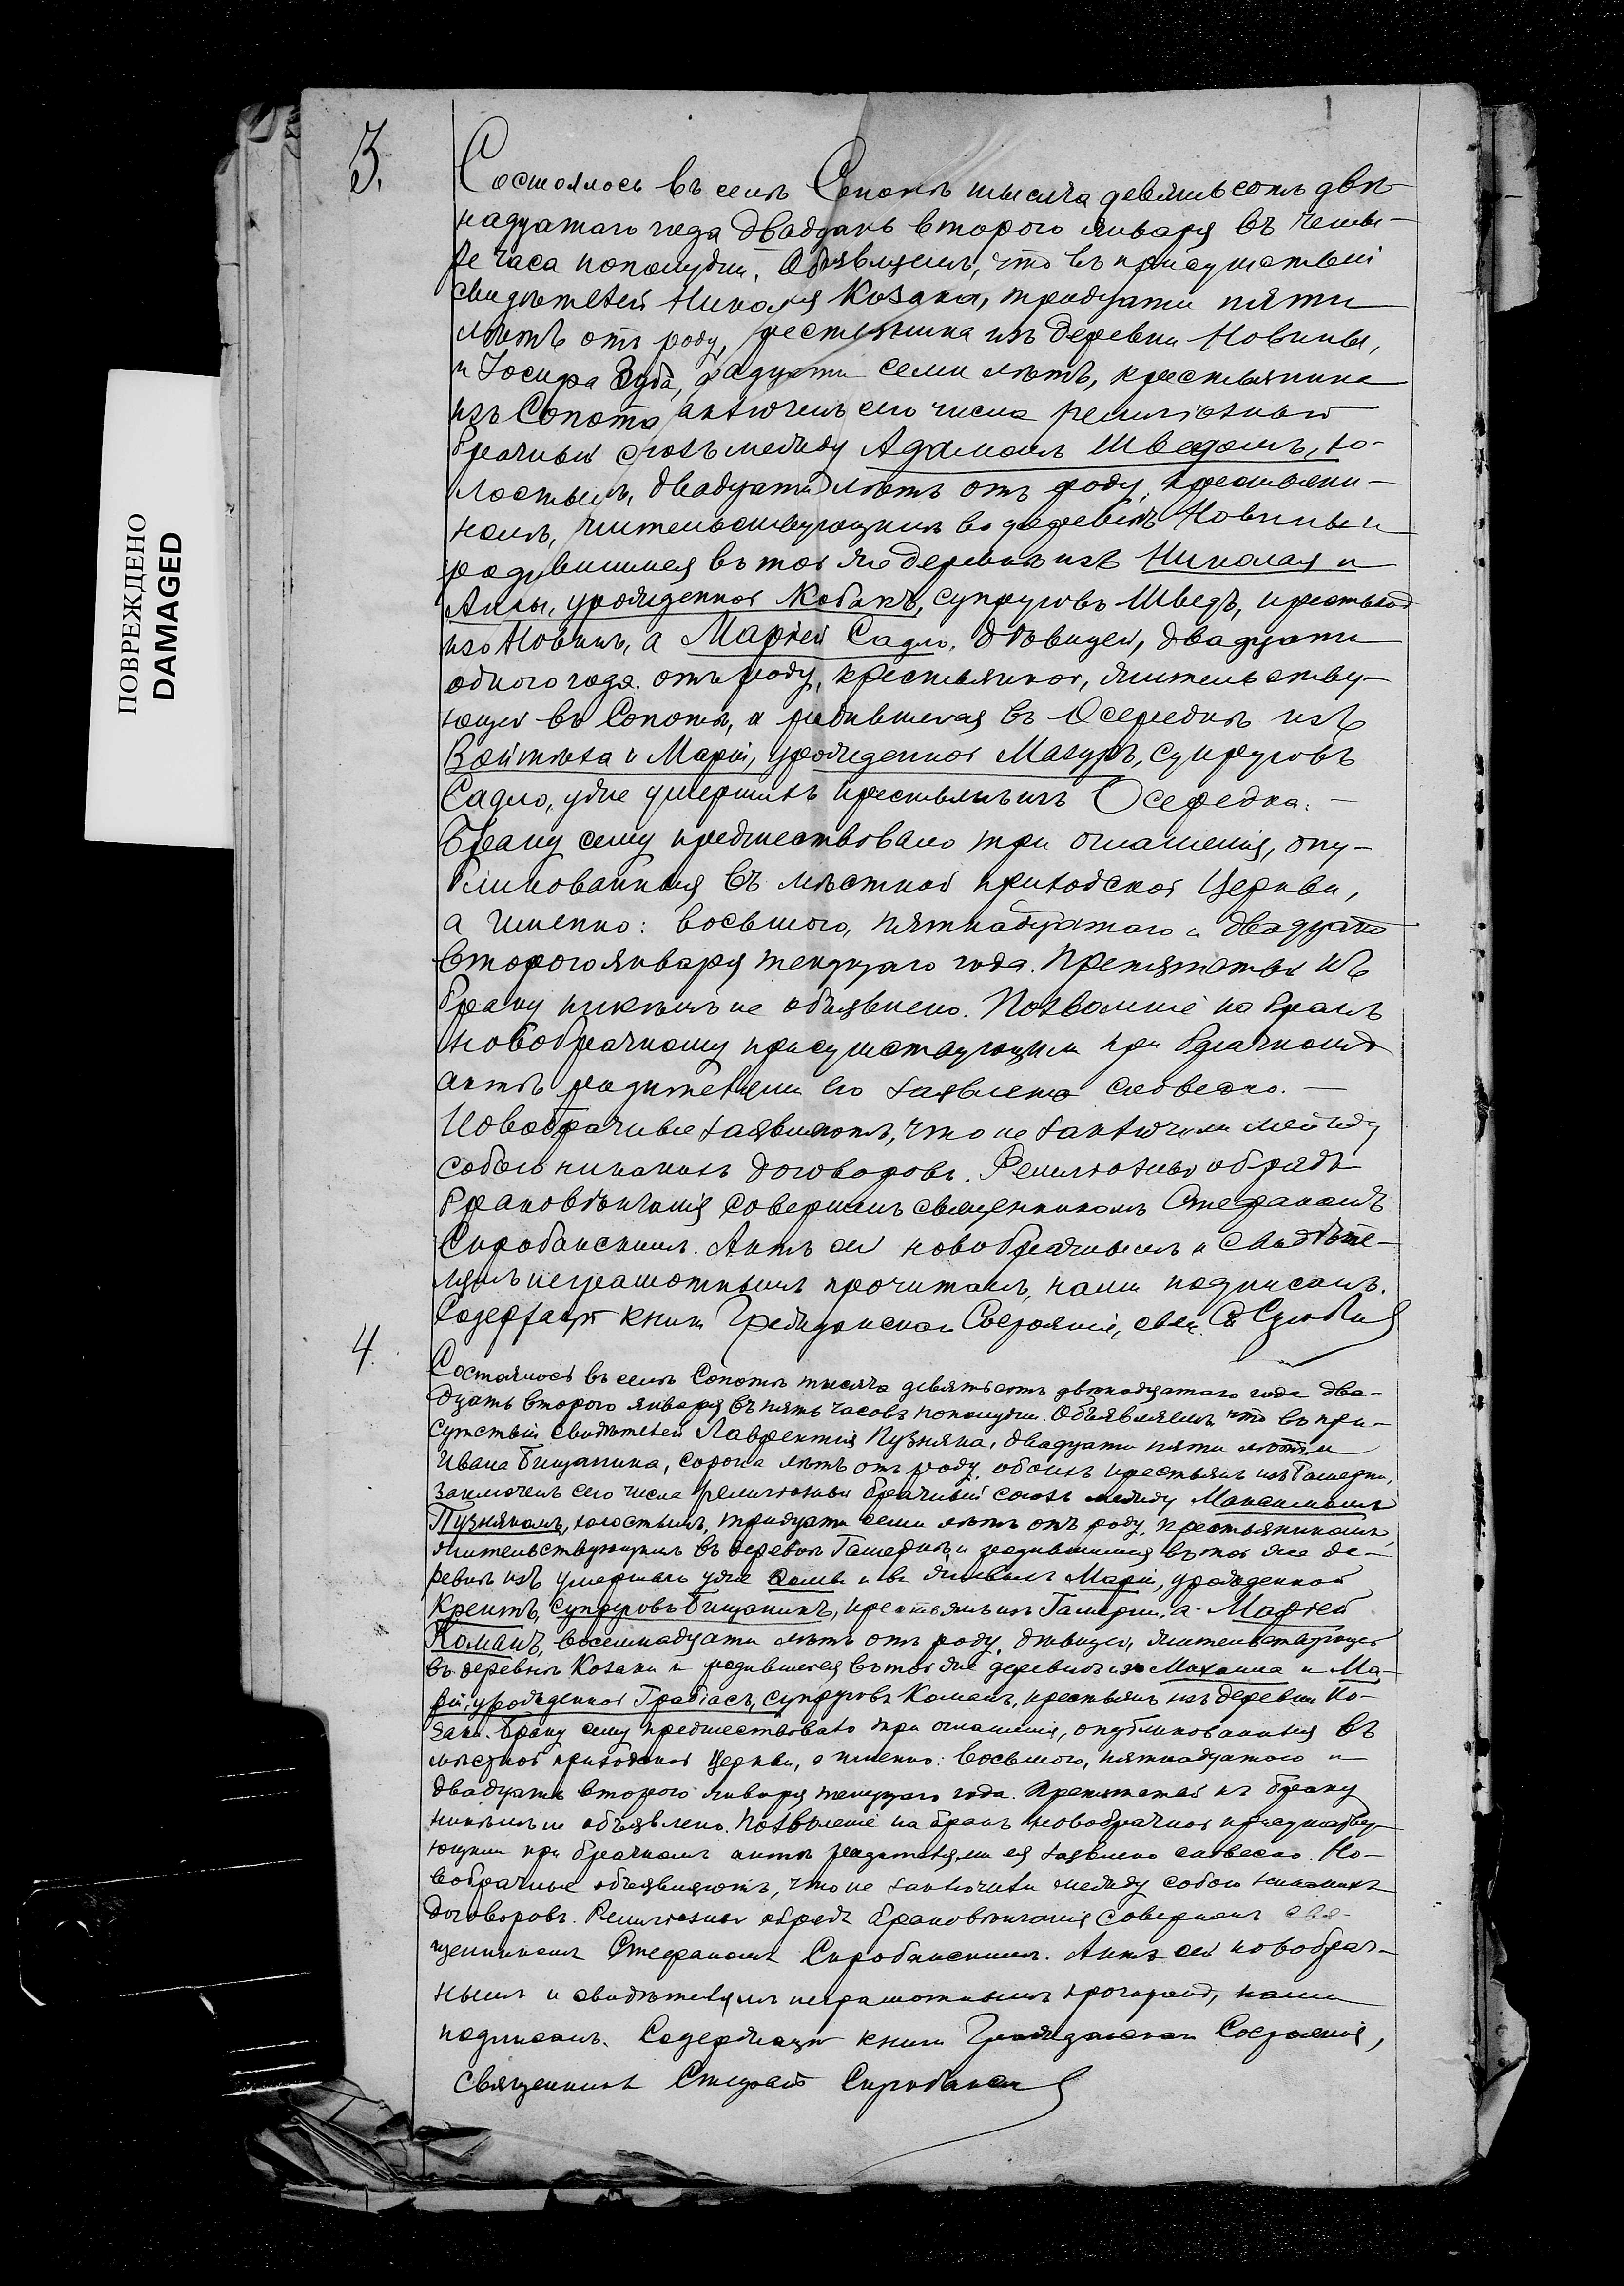 ПОВРЕЖДЕНО
DAMAGED
3.
Состоялось въ селѣ Сопотѣ тысяча девятьсотъ двѣ-
надцатаго года двадцать второго января въ четы-
ре часа пополудни. Объявляемъ, что въ присутствіи
свидѣтелей Николая Козака, тридцати пяти
лѣтъ отъ роду, крестьянина изъ деревни Новины,
и Іосифа Зуба, двадцати семи лѣтъ, крестьянина
изъ Сопота заключенъ сего числа религіозный
брачный союзъ между Адамомъ Шведомъ, хо-
лостымъ, двадцати лѣтъ отъ роду, крестьяни-
номъ, жительствующимъ въ деревнѣ Новины и
родившимся въ той же деревнѣ изъ Николая и
Анны, урожденной Кобакъ, супруговъ Шведъ, крестьянъ
изъ Новинъ, а Маріей Садло, дѣвицей, двадцати
одного года отъ роду, крестьянкой, жительству-
ющей въ Сопотѣ, и родившеюся въ Осередкѣ изъ
Войтѣха и Маріи, урожденной Мазуръ, супруговъ
Садло, уже умершихъ крестьянъ изъ Осередка.
Браку сему предшествовало три оглашенія, опу-
бликованныя въ мѣстной приходской Церкви,
а именно: восьмого, пятнадцатаго и двадцать
второго января текущаго года. Препятствій къ
браку никѣмъ не объявлено. Позволеніе на бракъ
новобрачному присутствующими при брачномъ
актѣ родителями его заявлено словесно.
Новобрачные заявляютъ, что не заключили между
собою никакихъ договоровъ. Религіозный обрядъ
браковѣнчанія совершенъ священникомъ Стефаномъ
Скробанскимъ. Актъ сей новобрачнымъ и свидѣте-
лямъ неграмотнымъ прочитанъ, нами подписанъ.
Содержащій книги Гражданскаго Состоянія, свящ.
4.
Состоялось въ селѣ Сопотѣ тысяча девятьсотъ двѣнадцатаго года два-
дцать второго января въ пять часовъ пополудни. Объявляемъ что въ при-
сутствіи свидѣтелей Лаврентія Пузняка, двадцати пяти лѣтъ и
Ивана Бищанина, сорока лѣтъ отъ роду, обоихъ крестьянъ изъ Гамерни,
заключенъ сего числа религіозный брачный союзъ между Максимомъ
Пузнякомъ, холостымъ, тридцати семи лѣтъ отъ роду, крестьяниномъ,
жительствующимъ въ деревнѣ Гамернѣ и родившимся въ той же де-
ревнѣ изъ умершаго уже и въ живыхъ Маріи, урожденной
супруговъ Бищанинъ, крестьянъ изъ Гамерни, а Маріей
Команъ, восемнадцати лѣтъ отъ роду, дѣвицей, жительствующей
въ деревнѣ Козаки и родившеюся въ той же деревнѣ изъ Михаила и Ма-
ріи, урожденной Грабіасъ, супруговъ Команъ, крестьянъ изъ деревни Ко-
заки. Браку сему предшествовало три оглашенія, опубликованныя въ
мѣстной приходской Церкви, а именно: восьмого, пятнадцатаго и
двадцать второго января текущаго года. Препятствій къ браку
никѣмъ не объявлено. Позволеніе на бракъ новобрачной присутству-
ющими при брачномъ актѣ родителями ея заявлено словесно. Но-
вобрачные объявляютъ, что не заключили между собою никакихъ
договоровъ. Религіозный обрядъ браковѣнчанія совершенъ свя-
щенникомъ Стефаномъ Скробанскимъ. Актъ сей новобрач-
нымъ и свидѣтелямъ неграмотнымъ прочитанъ, нами
подписанъ. Содержащій книги Гражданскаго Состоянія,
священникъ Стефанъ Скробанскій